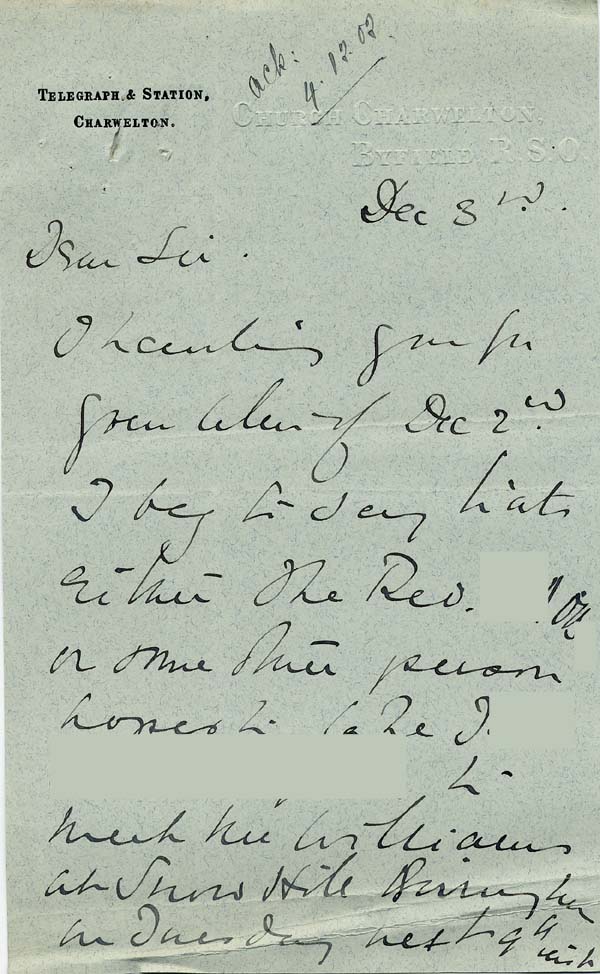 ack:
4.12.03
TELEGRAPH & STATION,
CHARWELTON.
CHURCH CHARWELTON
BYFIELD, R.S.O.
Dec 3rd.
Dear Sir.
Thanking you for
your letter of Dec 2nd.
I beg to say that
Either The Rev.
or some other person
proposes to take J.
to
meet Mr Williams
at Snow Hill Birmingham
on Tuesday next 9th
inst